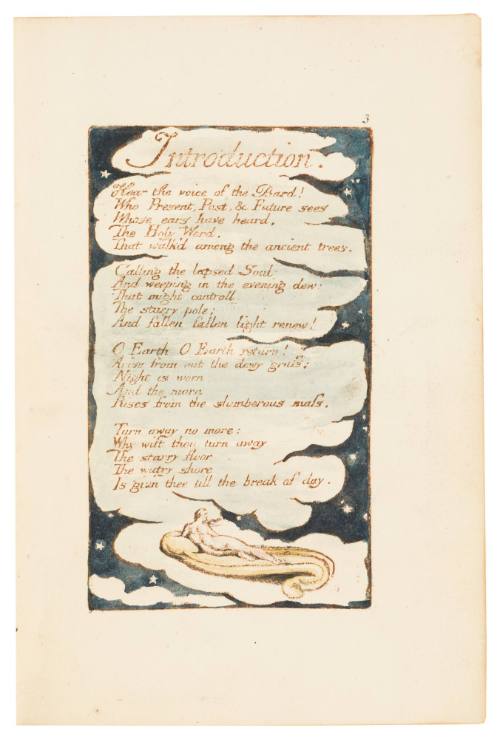 3
Introduction.
Hear the voice of the Bard!
Who Present, Past, & Future sees
Whose ears have heard,
The Holy Word,
That walk'd among the ancient trees.
Calling the lapsed Soul
And weeping in the evening dew:
That might controll
The starry pole;
And fallen fallen light renew!
O Earth O Earth return!
Arise from out the dewy grass;
Night is worn
And the morn
Rises from the slumberous mass.
Turn away no more:
Why wilt thou turn away
The starry floor
The watry shore
Is giv'n thee till the break of day.